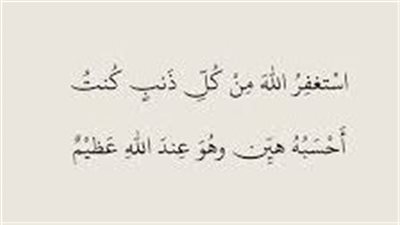 اسْتغفِرُ اللهَ مِنْ كُلِّ ذَنبٍ كُنتُ
أَحْسَبُهُ هيِّن وهُوَ عِندَ اللهِ عَظيْمٌ